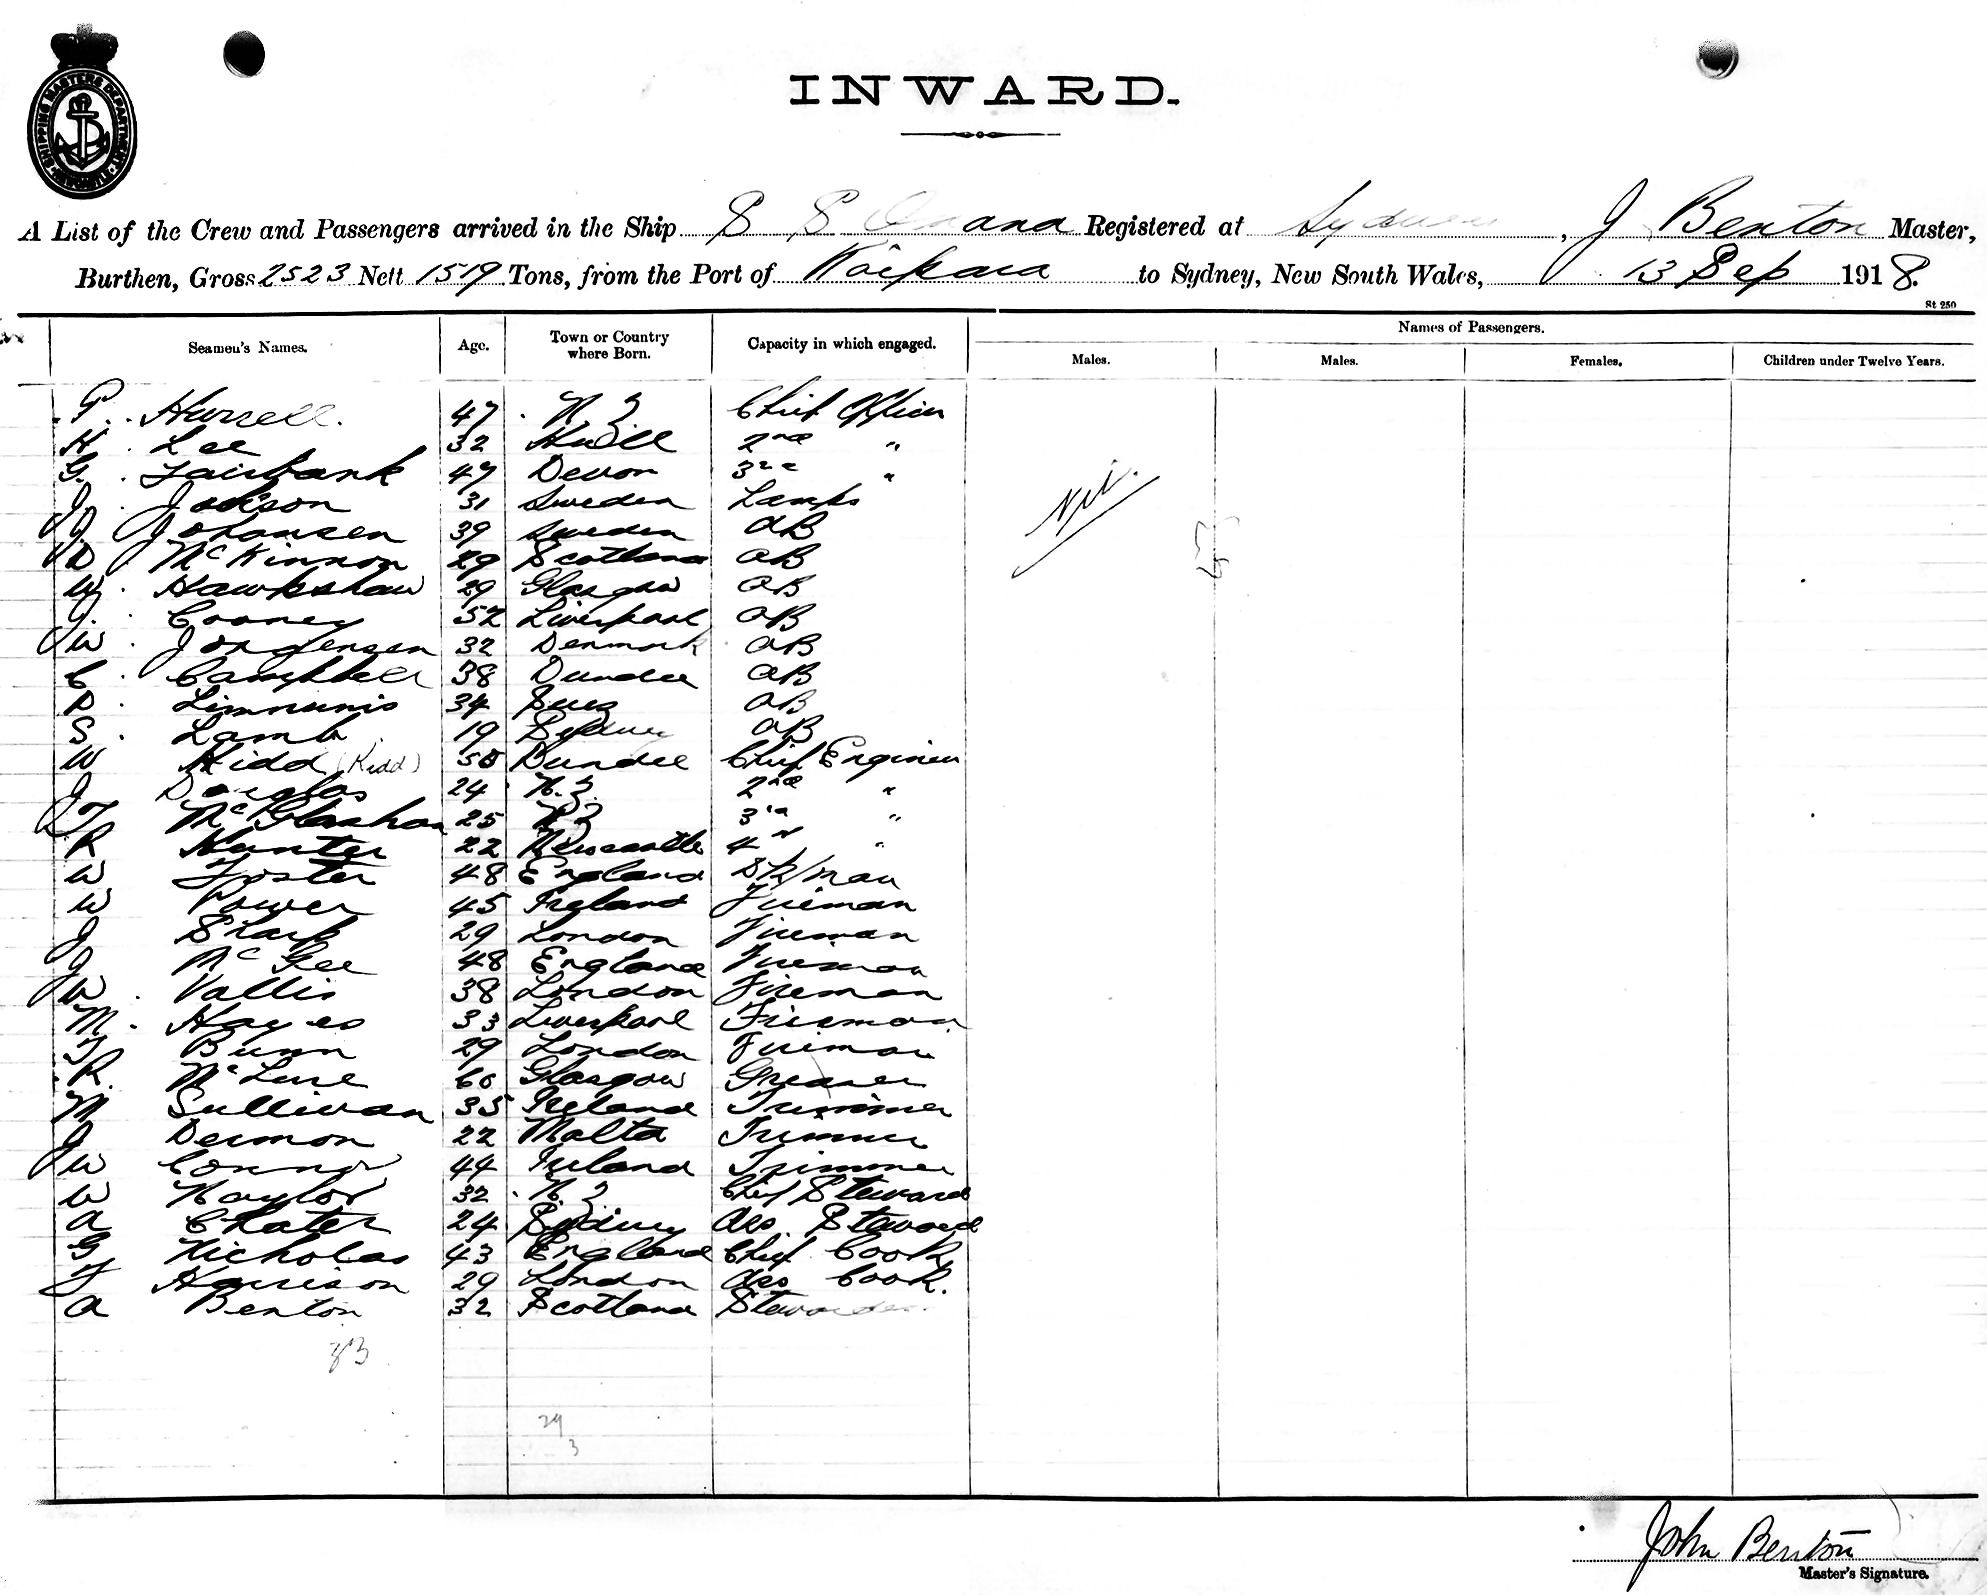 SHIPPING MASTERS DEPARTMENT NEWCASTLE
INWARD.
A List of the Crew and Passengers arrived in the Ship S S Registered at Sydney, J Benton Master,
Burthen, Gross 2523 Nett 1519 Tons, from the Port of Kaipara to Sydney, New South Wales, 13 Sep 1918.
St 250
Seamen's Names. Age. Town or Country where Born. Capacity in which engaged. Names of Passengers.
Males. Males. Females. Children under Twelve Years.
P. Hurrell. 47 N Z Chief Officer
H. Lee 32 Hull 2nd "
G. Fairbank 47 Devon 3rd "
J. Jackson 31 Sweden Lamps
J. Johansen 39 Sweden AB
D McKinnon 29 Scotland AB
W. Hawkshaw 29 Glasgow AB
J. Cooney 52 Liverpool AB
W. Jorgensen 32 Denmark AB
C. Campbell 38 Dundee AB
D. 34 AB
S. Lamb 19 Sydney AB
W Kidd (Kidd) 50 Dundee Chief Engineer
J Douglas 24 N.Z. 2nd "
J McGlashan 25 N Z 3rd "
R Hunter 22 Newcastle 4th "
W Foster 48 England Dk/man
W Power 45 Ireland Fireman
J Sharp 29 London Fireman
J McGee 48 England Fireman
W. Vallis 38 London Fireman
M. Hayes 33 Liverpool Fireman
T Bunn 29 London Fireman
R. 60 Glasgow Greaser
M Sullivan 35 Ireland Trimmer
J Dermon 22 Malta Trimmer
W Connor 44 Ireland Trimmer
W Naylor 32 N.Z Chief Steward
A Chater 24 Sydney Ass. Steward
G Nicholas 43 England Chief Cook
F Harrison 29 London Ass Cook.
A Benton 32 Scotland Stewardess
Nil.
33
29
3
John Benton
Master's Signature.